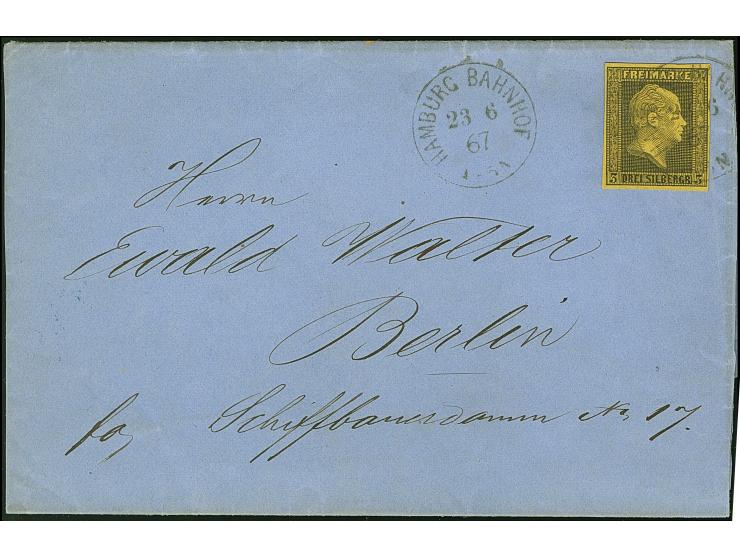 HAMBURG BAHNHOF
23 6
67
FREIMARKE
3 DREI SILBERGR. 3
Herrn
Ewald Walter
Berlin
Schiffbauerdamm No 17.